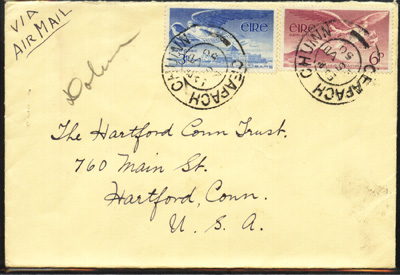 VIA
AIR MAIL
ÉIRE
ÉIRE
6d
CEAPACH CHUINN
CEAPACH CHUINN
The Hartford Conn Trust.
760 Main St.
Hartford, Conn.
U. S. A.